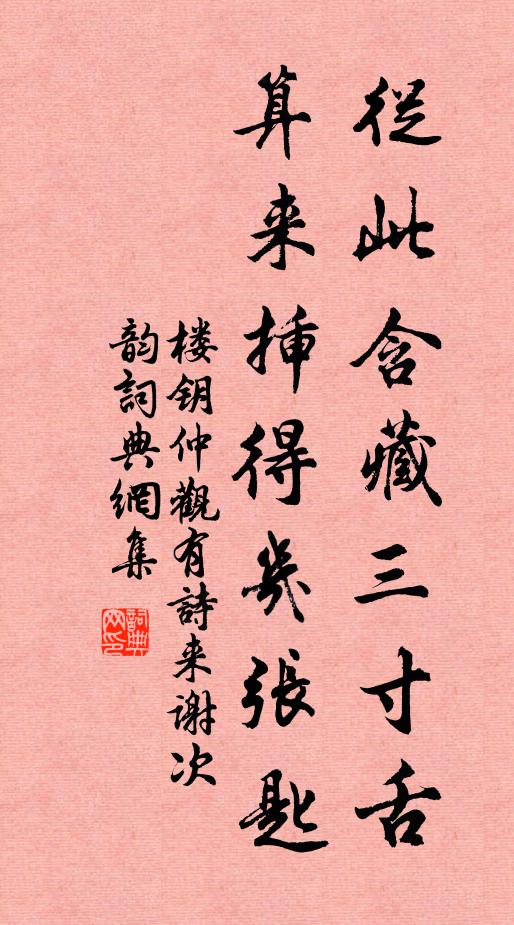 從此含藏三寸舌
算来揷得幾張匙
楼钥仲觀有詩来谢次
韵詞典網集
詞典网印